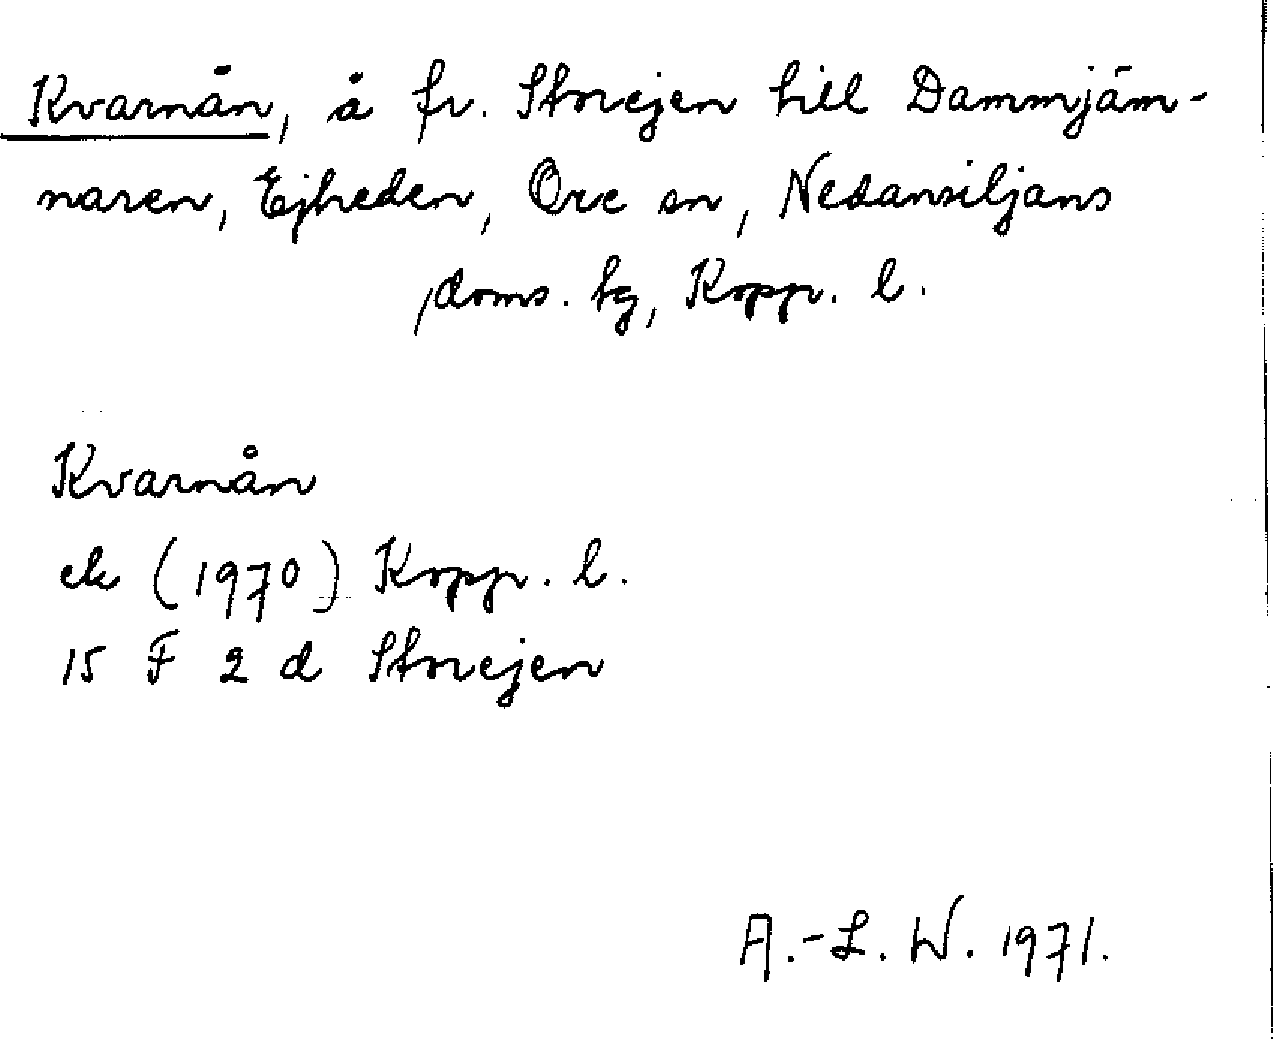 Kvarnån, å fr. Storejen till Dammjäm-
naren, Ejheden, Ore sn, Nedansiljans
doms. tg, Kopp. l.
Kvarnån
ek (1970) Kopp. l.
15 F 2 d Storejen
A.-L. W. 1971.